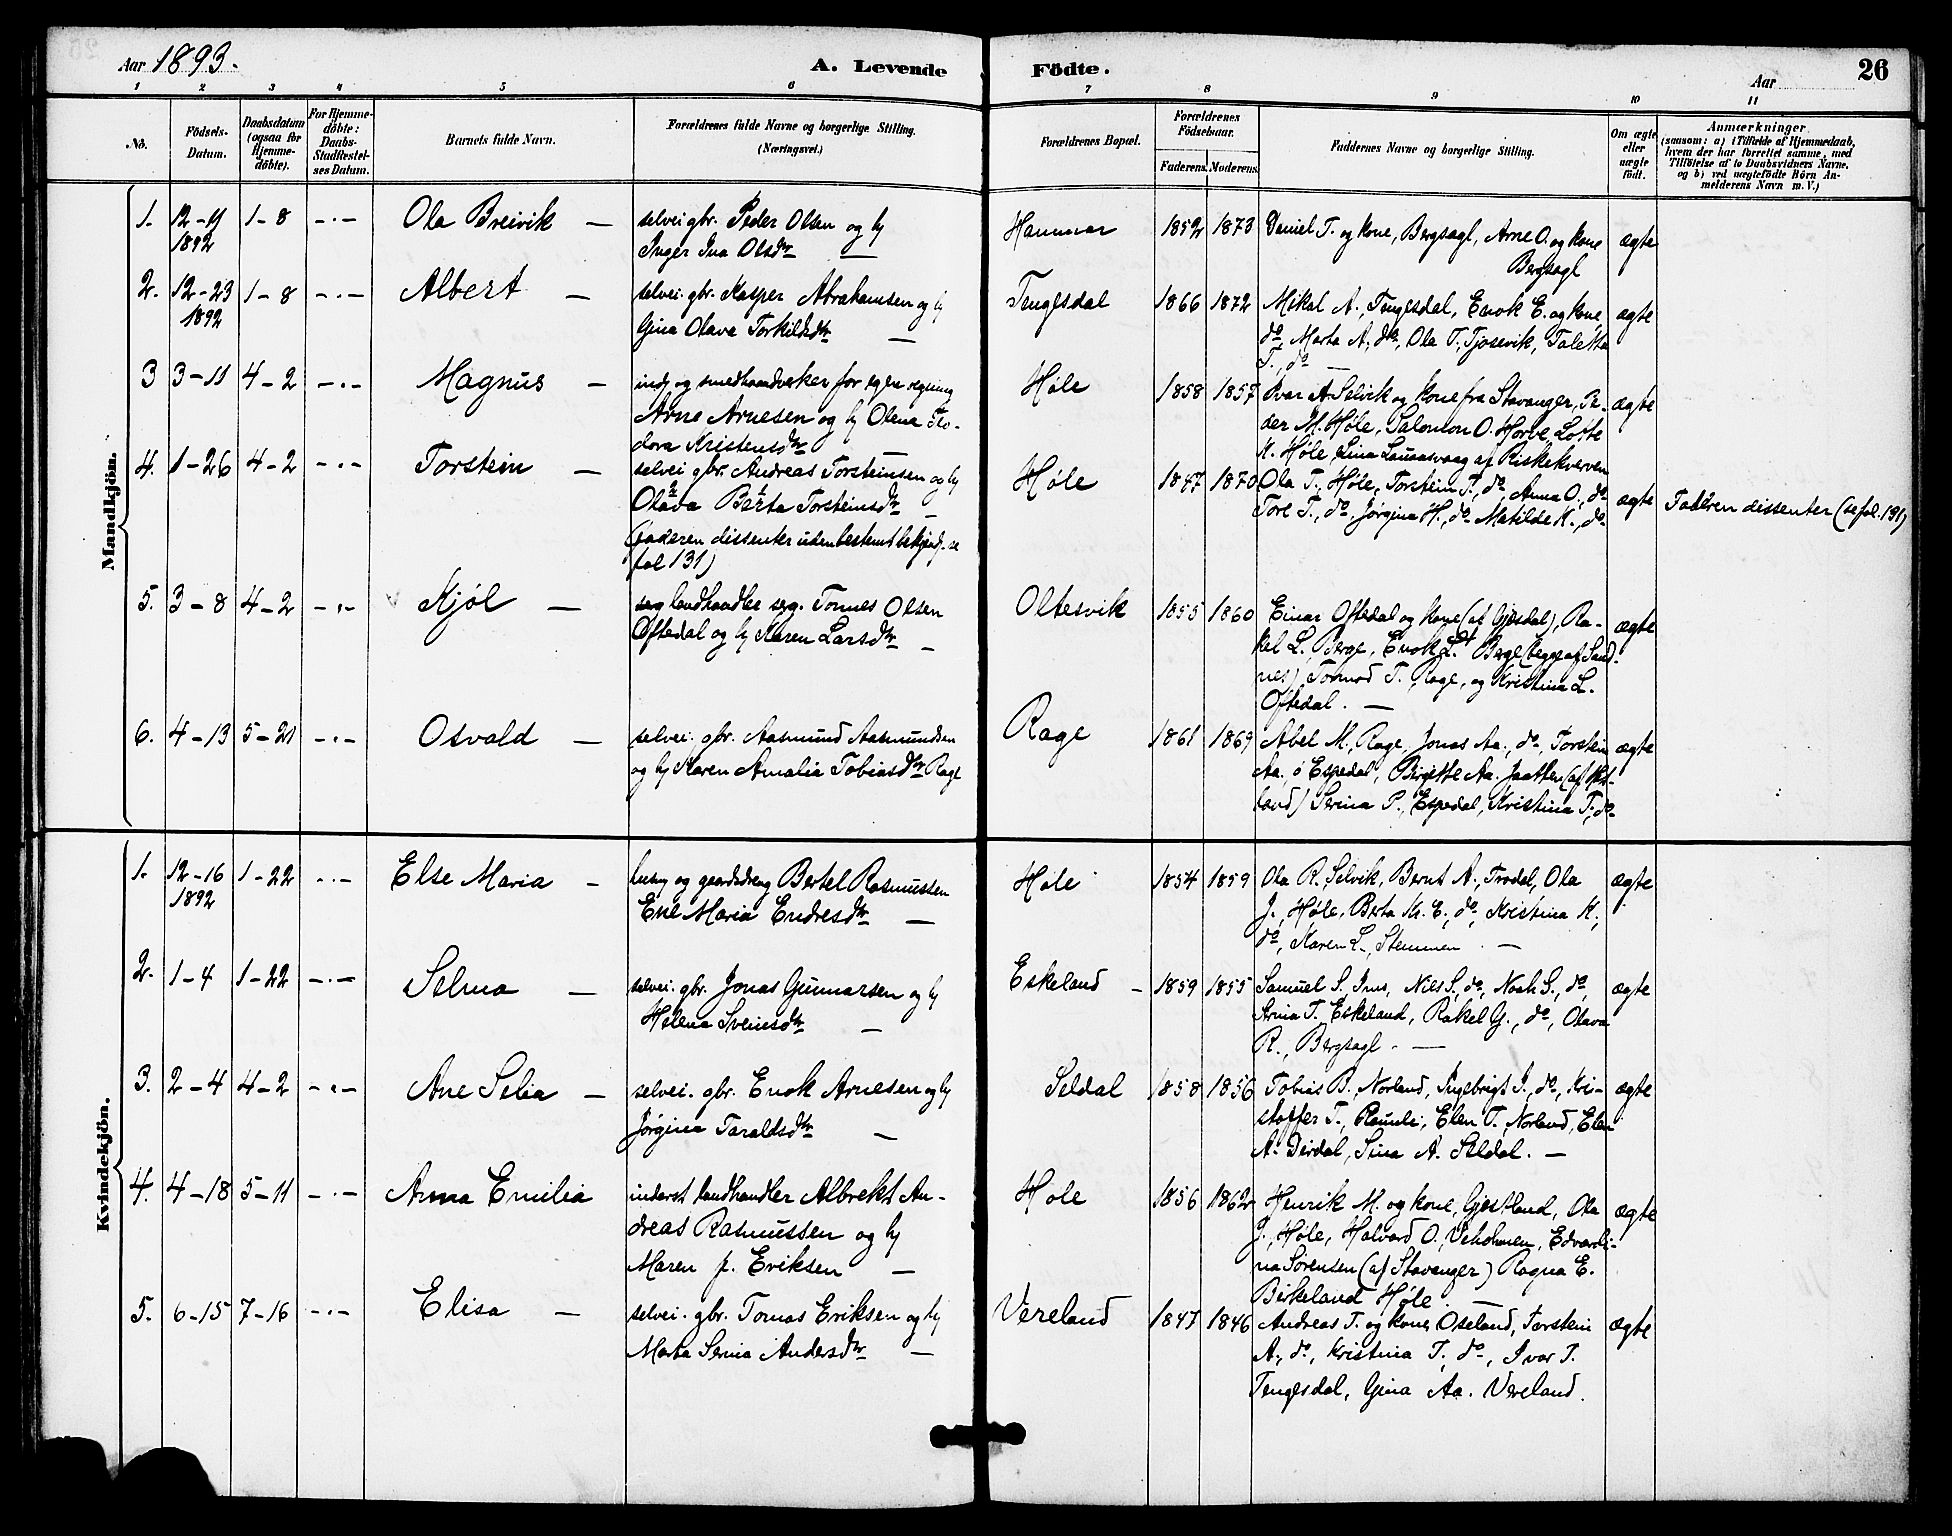 Aar 1893.
A. Levende Födte.
Aar
26
1 2 3 4 5 6 7 8 9 10 11
No.
Födsels-Datum.
Daabsdatum (ogsaa for Hjemmedöbte).
For Hjemmedöbte: Daabs-Stadfæstelses Datum.
Barnets fulde Navn.
Forældrenes fulde Navne og borgerlige Stilling. (Næringsvei.)
Forældrenes Bopæl.
Forældrenes Födselsaar.
Faderens. Moderens.
Faddernes Navne og borgerlige Stilling.
Om ægte eller uægte födt.
Anmærkninger
(saasom: a) i Tilfælde af Hjemmedaab,
hvem der har forrettet samme, med
Tilföielse af to Daabsvidners Navne.
og b) ved uægtefödte Börn An-
melderens Navn m.V.)
Mandkjön.
1. 12-11 1892 1-8 -.- Ola Breivik —
selvei gbr. Peder Olsen og h
Inger Ina Olsdtr —
Hammar 1852 1873
Daniel T. og kone, Bergsagl, Arne O. og kone
Bergsagl
ægte
2. 12-23 1892 1-8 -.- Albert —
selvei. gbr. Kasper Abrahamsen og h
Gina Olava Torkildsdtr —
Tengesdal 1866 1872
Mikal A., Tengesdal, Enok E. og kone,
do, Marta A., do, Ola T., Tjosevik, Taletta
T., do —
ægte
3 3-11 4-2 -.- Magnus —
inds og smedhaandverker for egen regning
Arne Arnesen og h Olena Teo-
dora Kristensdtr —
Høle 1858 1857
Ivar A. Selvik og kone fra Stavanger, Pe-
der M. Høle, Salomon O. Horve, Lotte
K. Høle, Lina Lauaasvaag af Riskekverven
ægte
4. 1-26 4-2 -.- Torstein —
selvei gbr. Andreas Torsteinsen og h
Olava Berta Torsteinsdtr —
(faderen dissenter uden bestemt bekjend. se
fol 131)
Høle 1847 1870
Ola T., Høle, Torstein T., do, Anna O., do
Tore T., do, Jørgina H., do Matilde K., do
ægte
Faderen dissenter (se fol. 131)
5. 3-8 4-2 -.- Kjøl —
landhandler Tonnes Olsen
Oftedal og h Karen Larsdtr —
Oltesvik 1855 1860
Einar Oftedal og kone (af Gjesdal), Ra-
kel L. Berge, Enok L. Berge (begge af Sand-
nes), Tormod T. Rage, og Kristina L.
Oftedal. —
ægte
6. 4-13 5-21 -.- Osvald —
selvei. gbr. Aasmund Aasmundsen
og h Karen Amalia Tobiasdtr Rage
Rage 1861 1869
Abel M., Rage, Jonas Aa., do, Torstein
Aa., Espedal, Birgitte Aa. Jaatten (af Het-
land) Serina P., Espedal, Kristina T., do
ægte
Kvindekjön.
1. 12-16 1892 1-22 -.- Else Maria —
husm og gaardsdreng Bertel Rasmussen
Ene Maria Endresdtr —
Høle 1854 1859
Ola R., Selvik, Bernt A., Frødal, Ola
J., Høle, Berta Kr. E., do, Kristina K.,
do, Karen L., Stemmen —
ægte
2. 1-4 1-22 -.- Selma —
selvei. gbr. Jonas Gunnarsen og h
Helena Svensdtr —
Eskeland — 1859 1855
Samuel S. Ims, Nils S., do, Noah S., do,
Serina T., Eskeland, Rakel G., do, Olava
R., Bergsagl. —
ægte
3. 2-4 4-2 -.- Ane Selia —
selvei. gbr. Enok Arnesen og h
Jørgina Taraldsdtr —
Seldal 1858 1856
Tobias B., Norland, Ingebrigt I., do, Kri-
stoffer T., Raunli, Elen T., Norland, Elen
A. Dirdal, Sina A. Seldal. —
ægte
4. 4-18 5-11 -.- Anna Emilia
inderst landhandler Albrekt An-
dreas Rasmussen og h
Maren f. Eriksen —
Høle 1856 1862
Henrik M. og kone, Gjestland, Ola
J., Høle, Halvard O., Veholmen, Edvardi-
na Sørensen (af Stavanger) Ragna E.
Birkeland Høle. —
ægte
5. 6-15 7-16 -.- Elisa —
selvei. gbr. Tomas Eriksen og h
Marta Serina Andersdtr —
Vereland 1847 1846
Andreas T. og kone Oseland, Torstein
A., do, Kristina T., do, Ivar T.
Tengesdal, Gina Aa. Vereland.
ægte